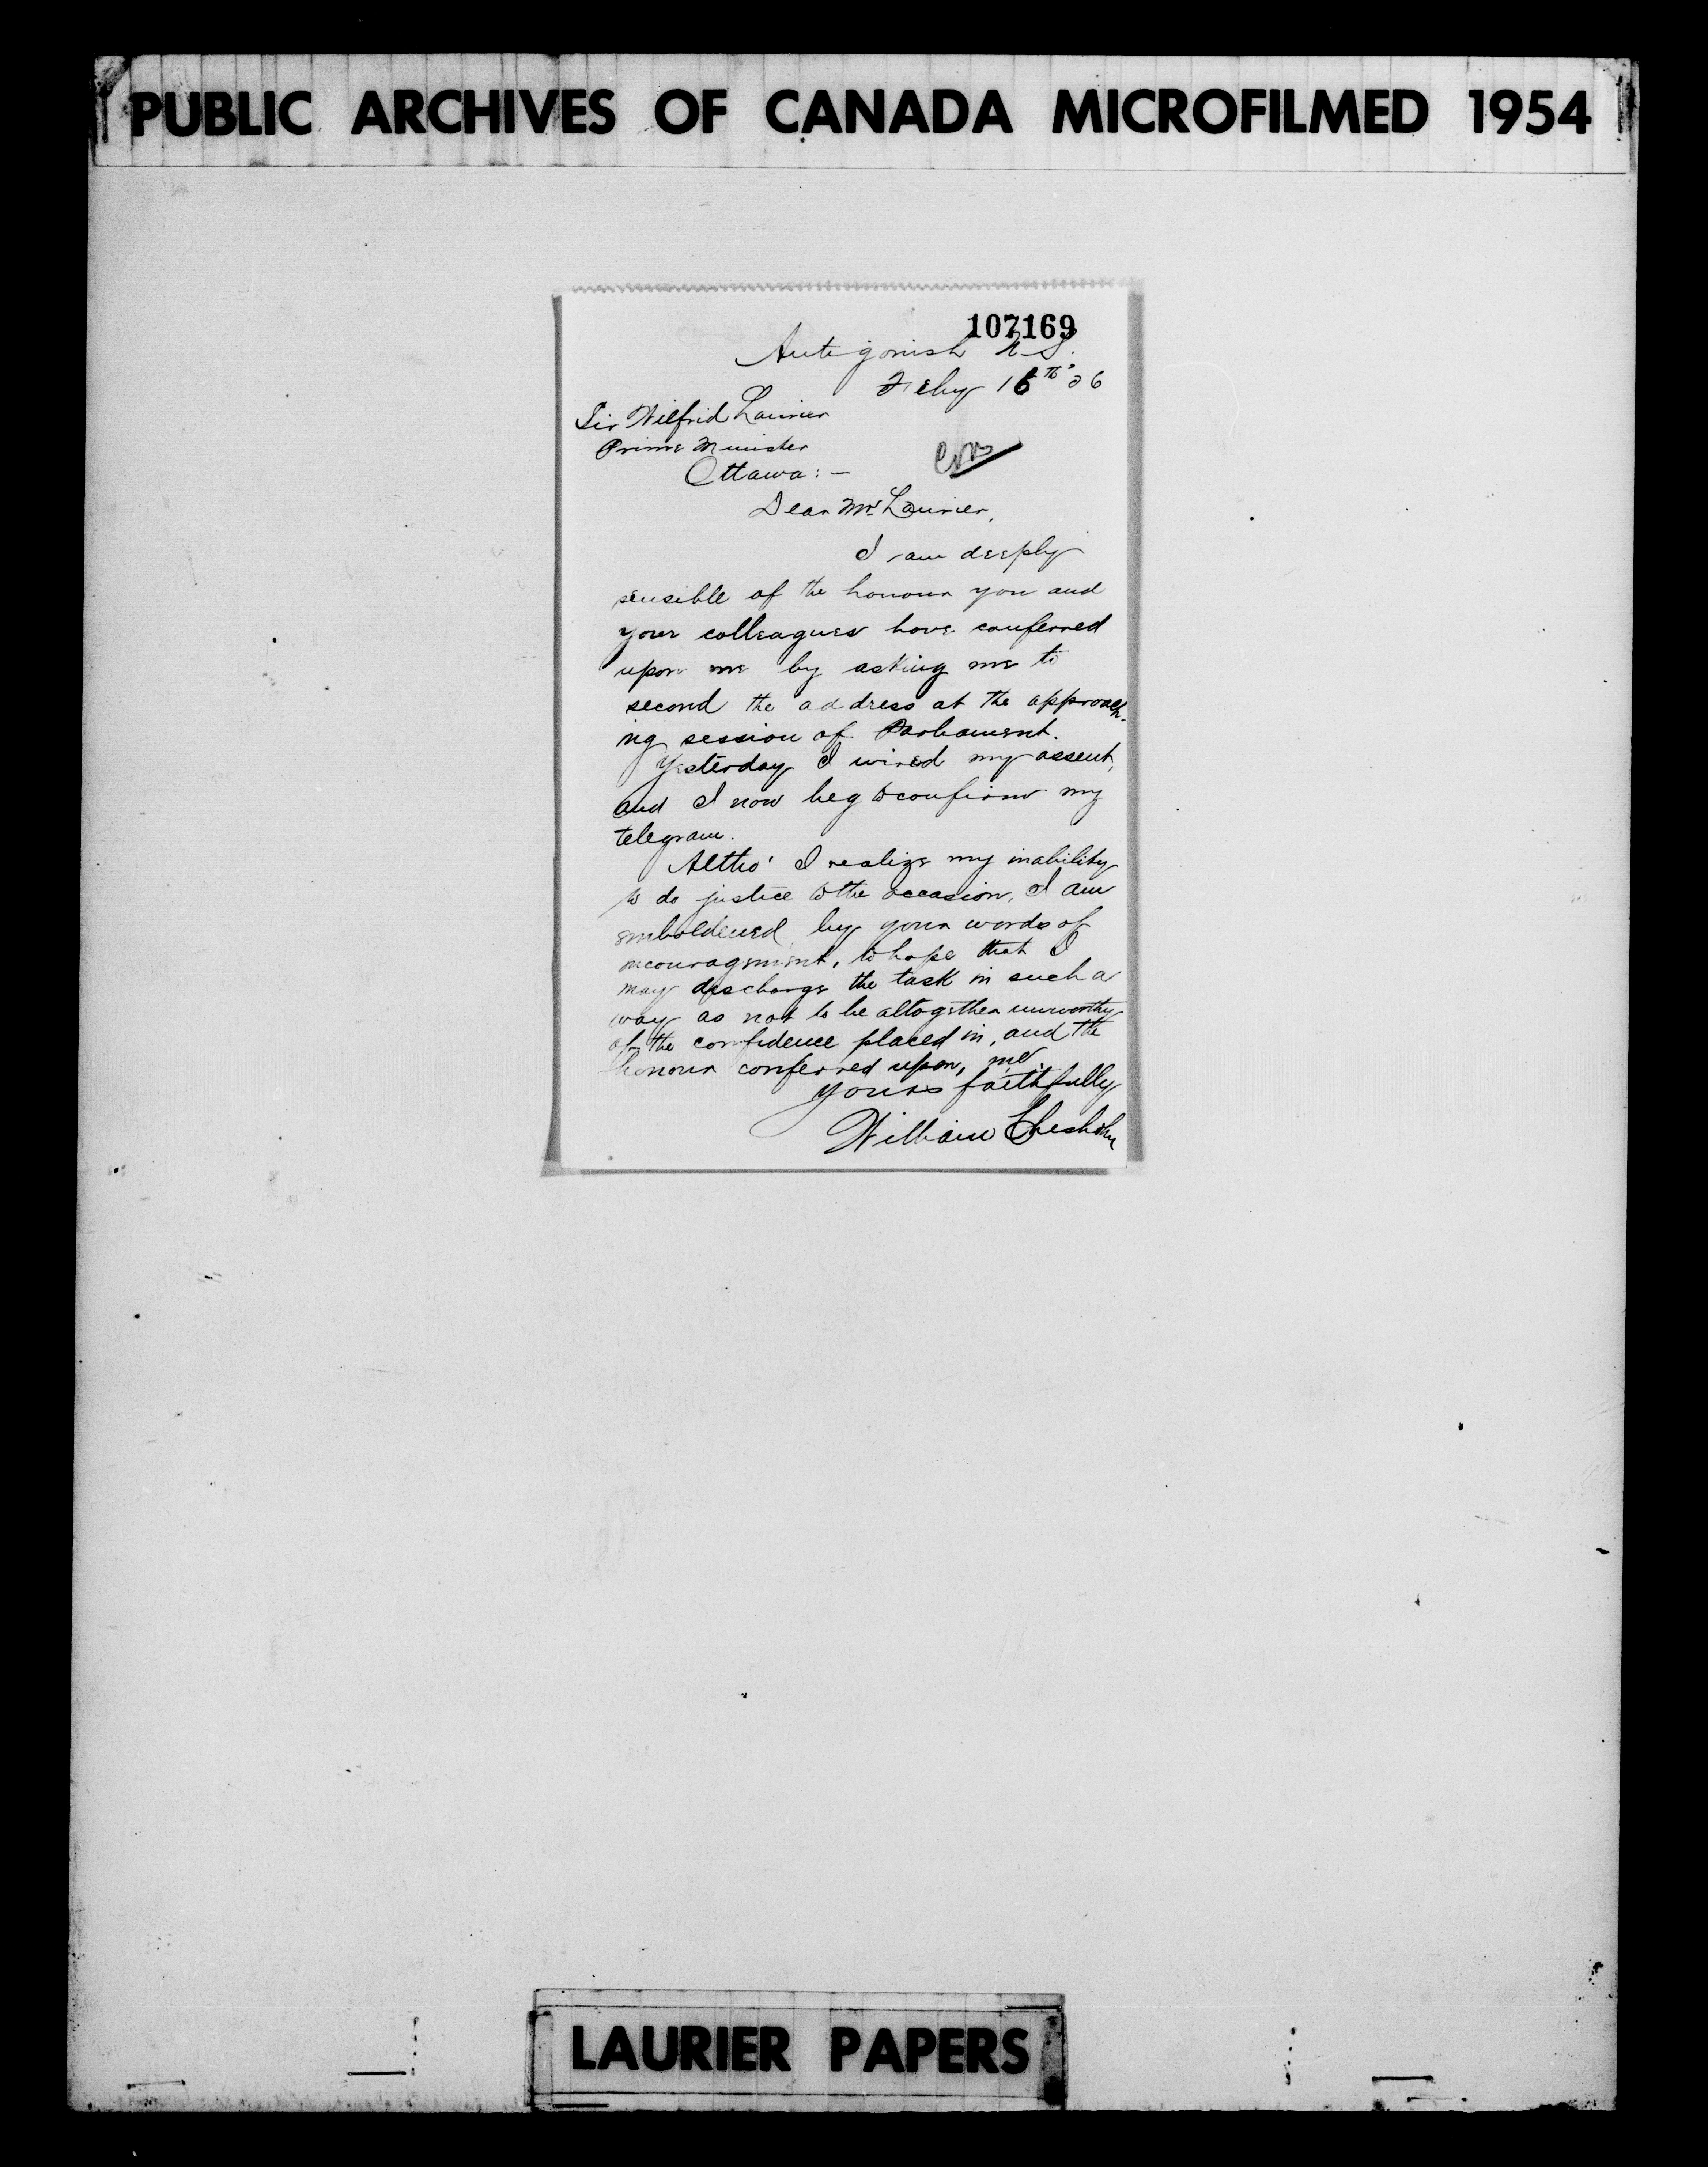 PUBLIC ARCHIVES OF CANADA MICROFILMED 1954
107169
Antigonish N.S.
Feby 16th 06
Sir Wilfrid Laurier
Prime Minister
Ottawa:—
Dear Mr Laurier,
I am deeply
sensible of the honour you and
your colleagues have conferred
upon me by asking me to
second the address at the approach-
ing session of Parliament.
Yesterday I wired my assent,
and I now beg to confirm my
telegram.
Altho' I realize my inability
to do justice to the occasion, I am
emboldened by your words of
encouragement, to hope that I
may discharge the task in such a
way as not to be altogether unworthy
of the confidence placed in, and the
honour conferred upon, me.
Yours faithfully
William Chisholm
LAURIER PAPERS